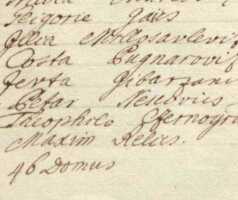 Grigorie Gaus
Illia Millosavlevis
Costa Pugnarovis
Jevta Gibarzani
Petar Nescovics
Theophilo Zfernogo
Maxim Relics.
46 Domus